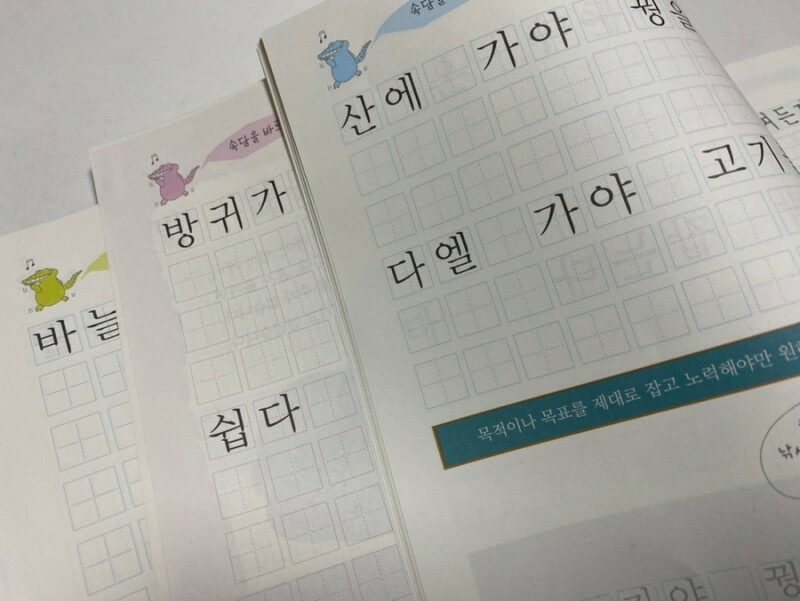 속담을
산에 가야 꿩을
다엘 가야 고기
목적이나 목표를 제대로 잡고 노력해야만
가야 꿩
속담을 바로
방귀가
쉽다
바늘